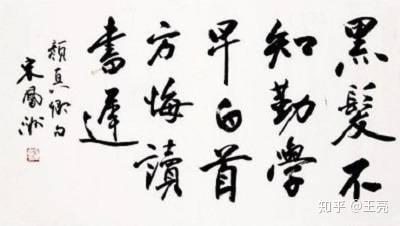 黑髮不
知勤學
早白首
方悔讀
書遲
顏真卿句
知乎 @王亮